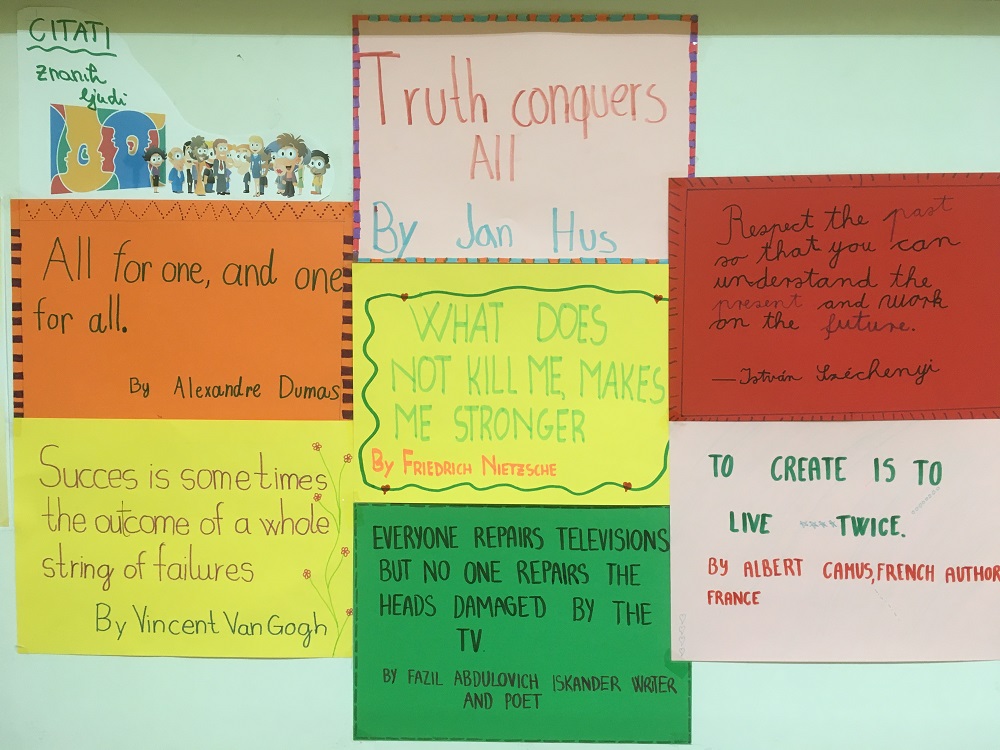 CITATI
znanih
ljudi
Truth conquers
All
By Jan Hus
All for one, and one
for all.
By Alexandre Dumas
WHAT DOES
NOT KILL ME, MAKES
ME STRONGER
By FRIEDRICH NIETZSCHE
Respect the past
so that you can
understand the
present and work
on the future.
— István Széchenyi
Succes is sometimes
the outcome of a whole
string of failures
By Vincent Van Gogh
EVERYONE REPAIRS TELEVISIONS
BUT NO ONE REPAIRS THE
HEADS DAMAGED BY THE
TV.
BY FAZIL ABDULOVICH ISKANDER WRITER
AND POET
TO CREATE IS TO
LIVE TWICE.
BY ALBERT CAMUS, FRENCH AUTHOR
FRANCE